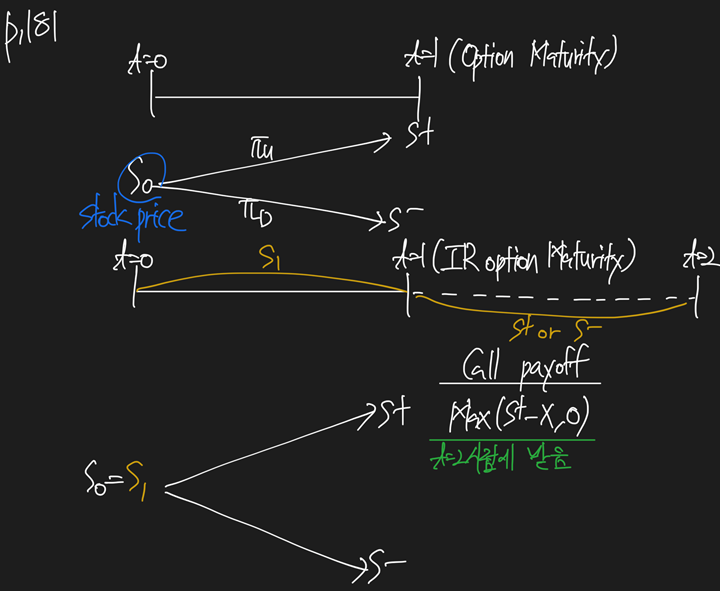 p.181
t=0 t=1 (Option Maturity)
πu S+
S0
stock price πD S-
t=0 S1 t=1 (IR option Maturity) t=2
S+ or S-
Call payoff
S+ Max(S+-X,0)
t=2시점에 받음
S0=S1
S-